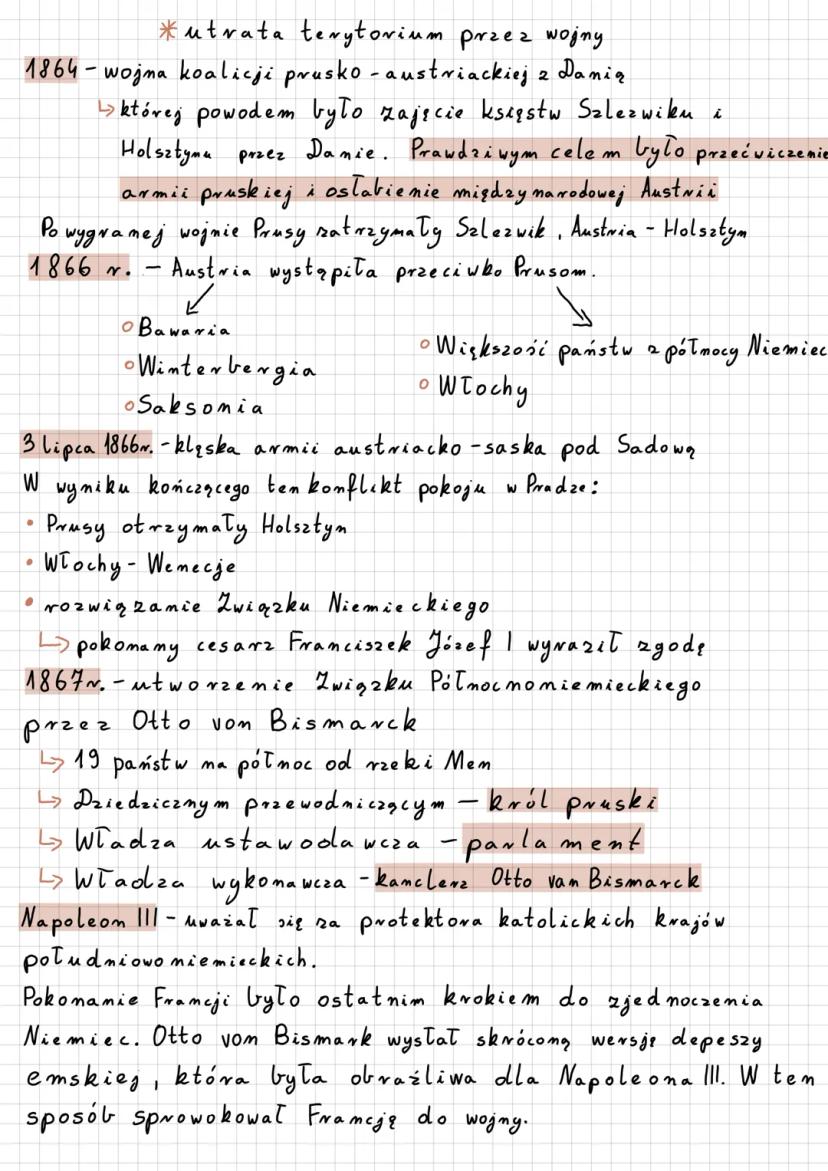 * utrata terytorium przez wojny
1864 - wojna koalicji prusko - austriackiej z Danią
↳ której powodem było zajęcie księstw Szlezwiku i
Holsztynu przez Danie. Prawdziwym celem było przećwiczenie
armii pruskiej i osłabienie międzynarodowej Austrii
Po wygranej wojnie Prusy zatrzymały Szlezwik, Austria - Holsztyn
1866 r. - Austria wystąpiła przeciwko Prusom.
○ Bawaria
○ Winterbergia
○ Saksonia
○ Większość państw z północy Niemiec
○ Włochy
3 lipca 1866r. - klęska armii austriacko - saska pod Sadową
W wyniku kończącego ten konflikt pokoju w Pradze:
• Prusy otrzymały Holsztyn
• Włochy - Wenecje
• rozwiązanie Związku Niemieckiego
↳ pokonany cesarz Franciszek Józef I wyraził zgodę
1867r. - utworzenie Związku Północnoniemieckiego
przez Otto von Bismarck
↳ 19 państw na północ od rzeki Men
↳ Dziedzicznym przewodniczącym - król pruski
↳ Władza ustawodawcza - parlament
↳ Władza wykonawcza - kanclerz Otto van Bismarck
Napoleon III - uważał się za protektora katolickich krajów
południowo niemieckich.
Pokonanie Francji było ostatnim krokiem do zjednoczenia
Niemiec. Otto von Bismark wysłał skróconą wersję depeszy
emskiej, która była obraźliwa dla Napoleona III. W ten
sposób sprowokował Francję do wojny.